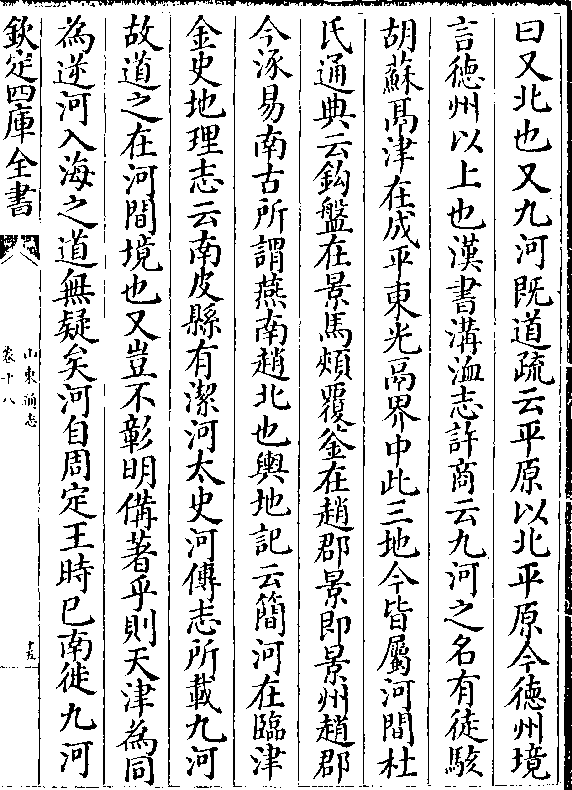 曰又北也又九河既道疏云平原以北平原今徳州境
言徳州以上也漢書溝洫志許商云九河之名有徒駭
胡蘇鬲津在成平東光鬲界中此三地今皆屬河間杜
氏通典云鈎盤在景馬頰覆釜在趙郡景即景州趙郡
今涿易南古所謂燕南趙北也輿地記云簡河在臨津
金史地理志云南皮縣有潔河太史河傳志所載九河
故道之在河間境也又豈不彰明備著乎則天津為同
為逆河入海之道無疑矣河自周定王時已南徙九河
欽定四庫全書
山東通志
卷十八
十五